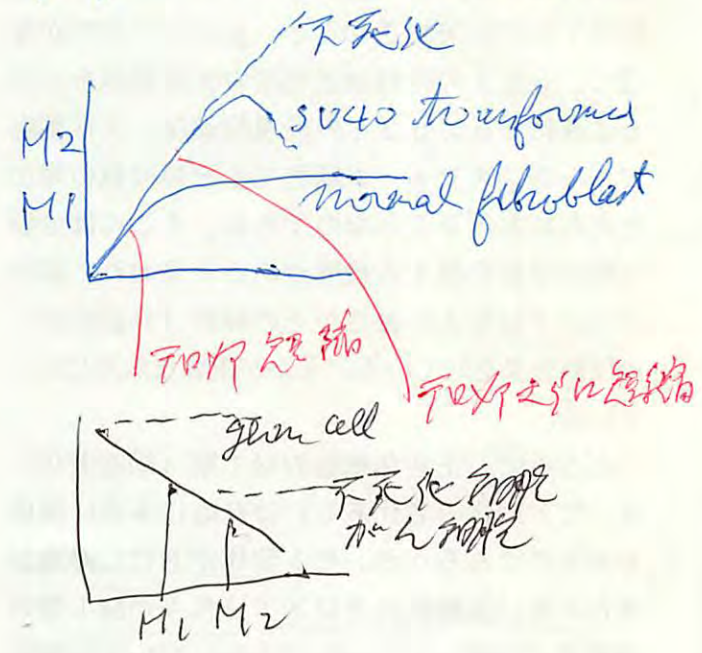 不死化
SV40 transformed
M2
M1
normal fibroblast
テロメア 短縮
テロメア さらに短縮
germ cell
不死化 細胞
がん細胞
M1 M2